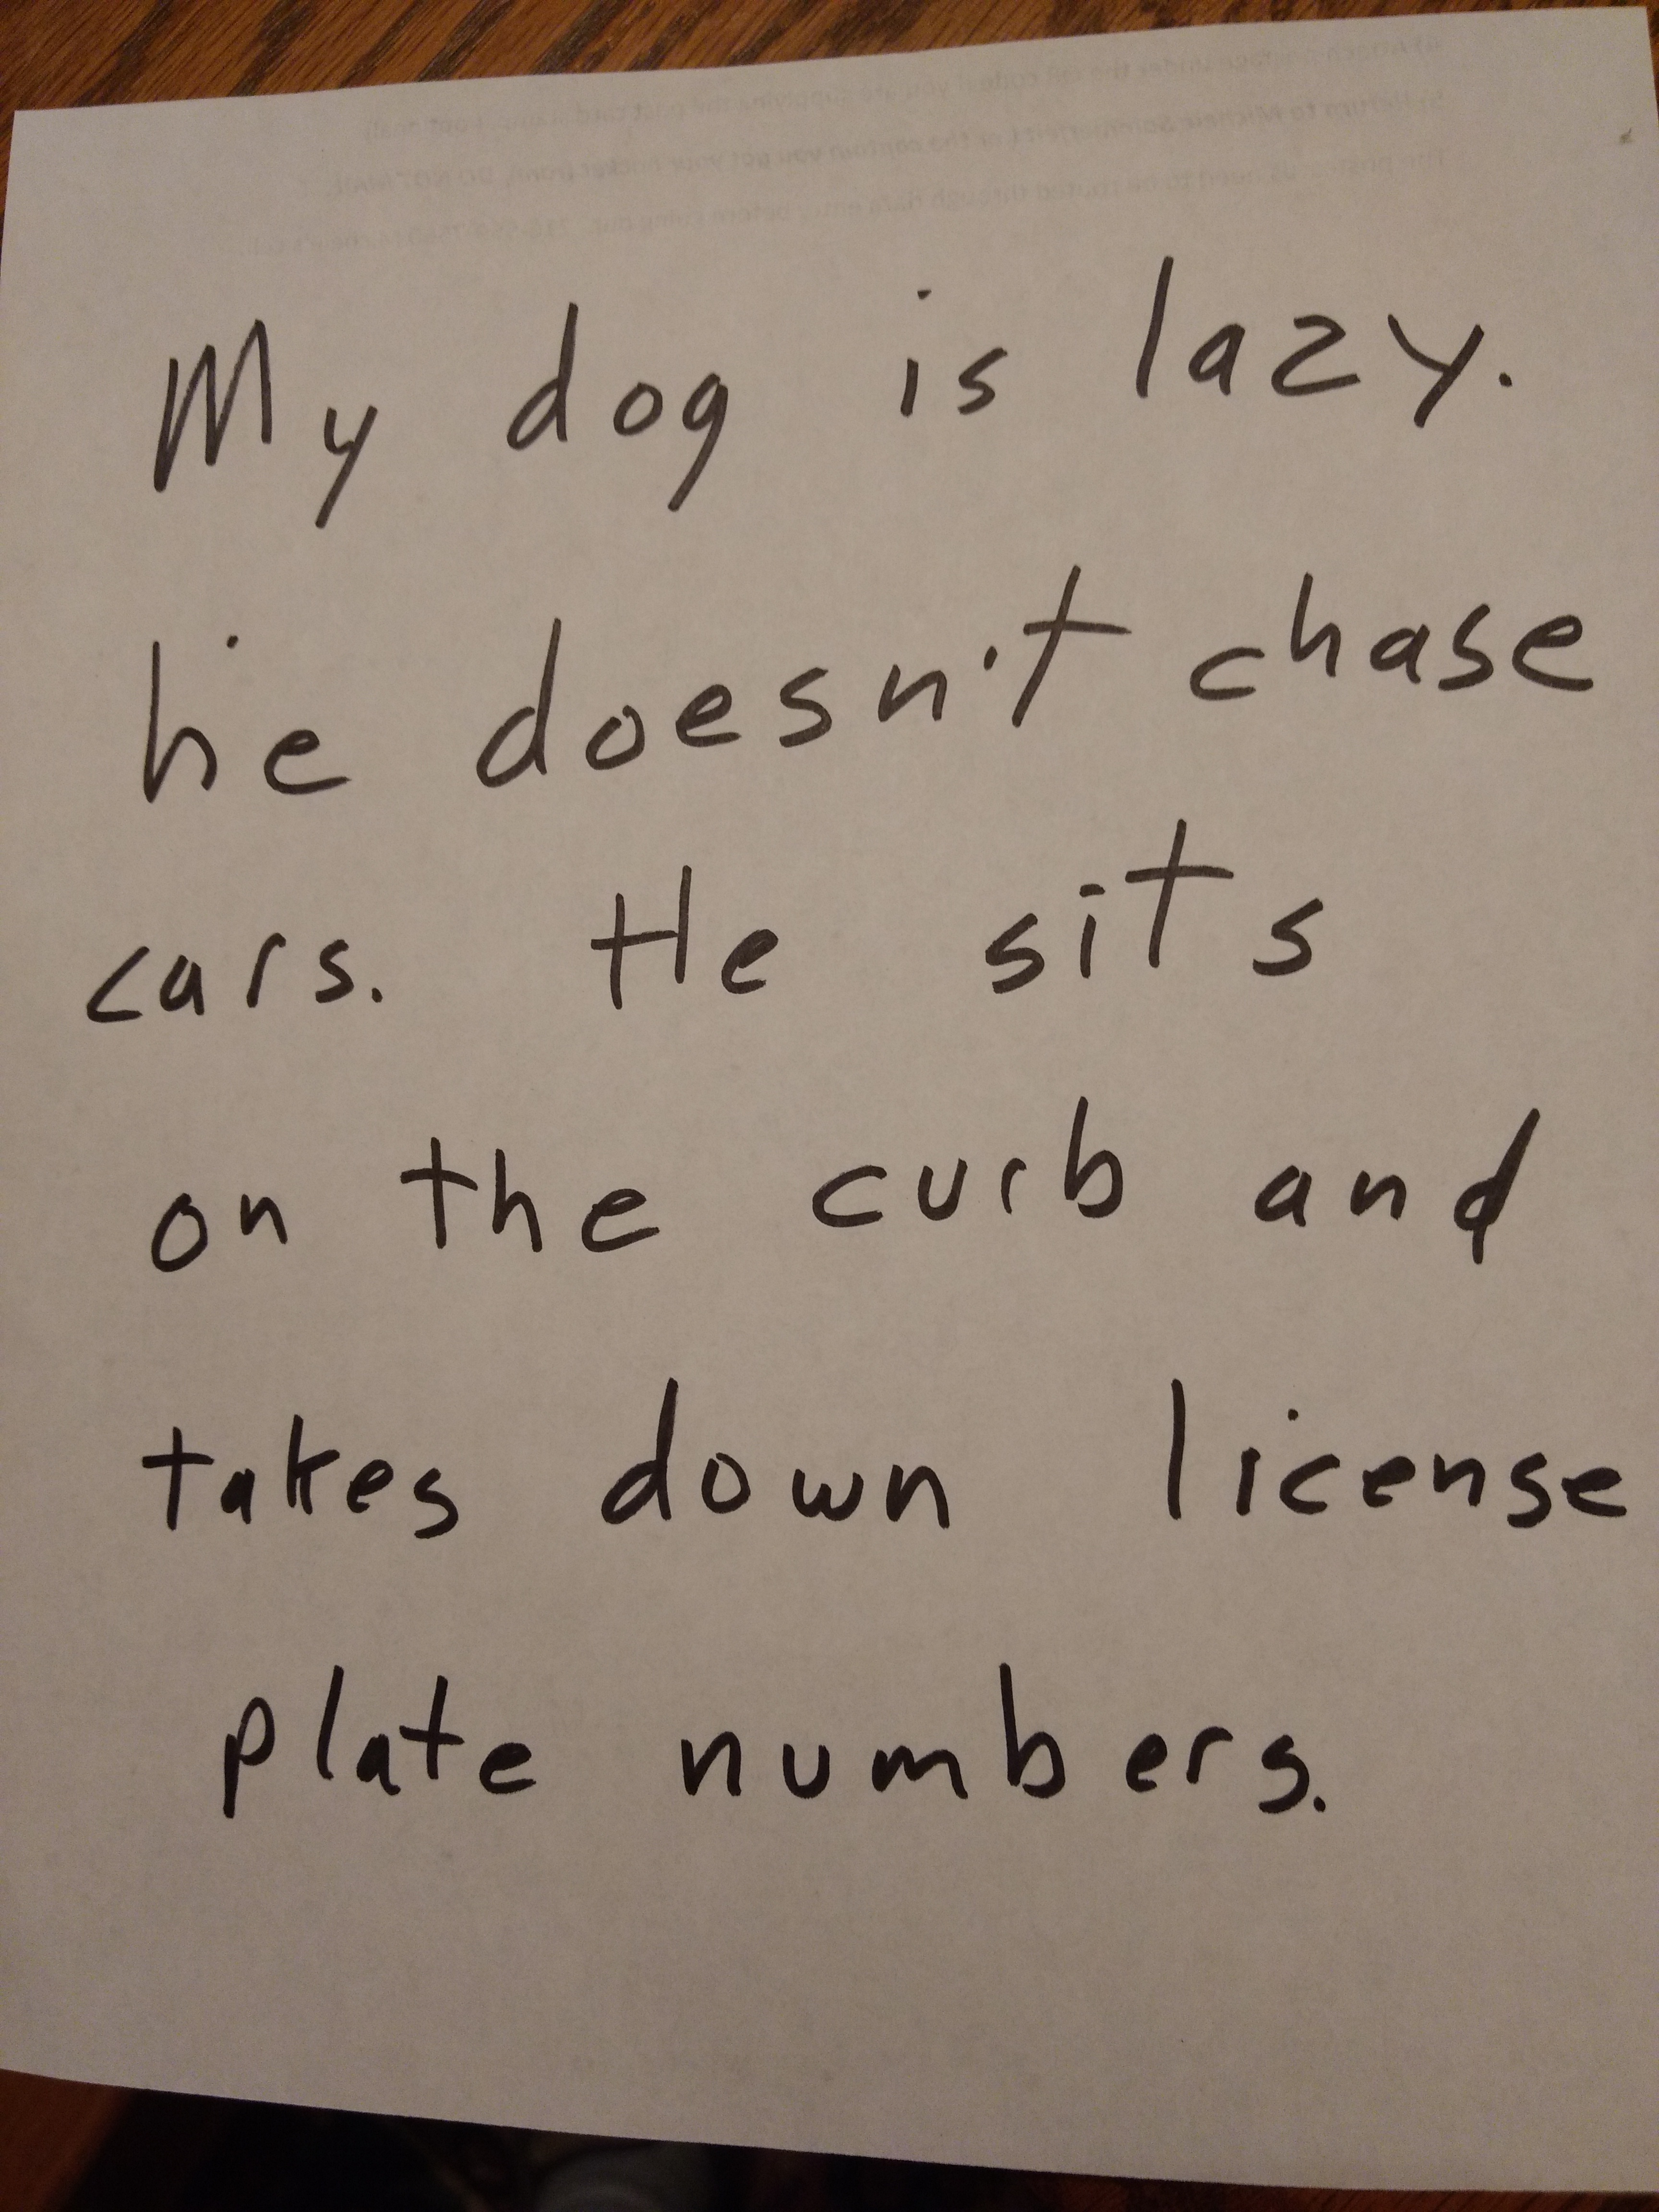 My dog is lazy.
he doesn't chase
cars. He sits
on the curb and
takes down license
plate numbers.